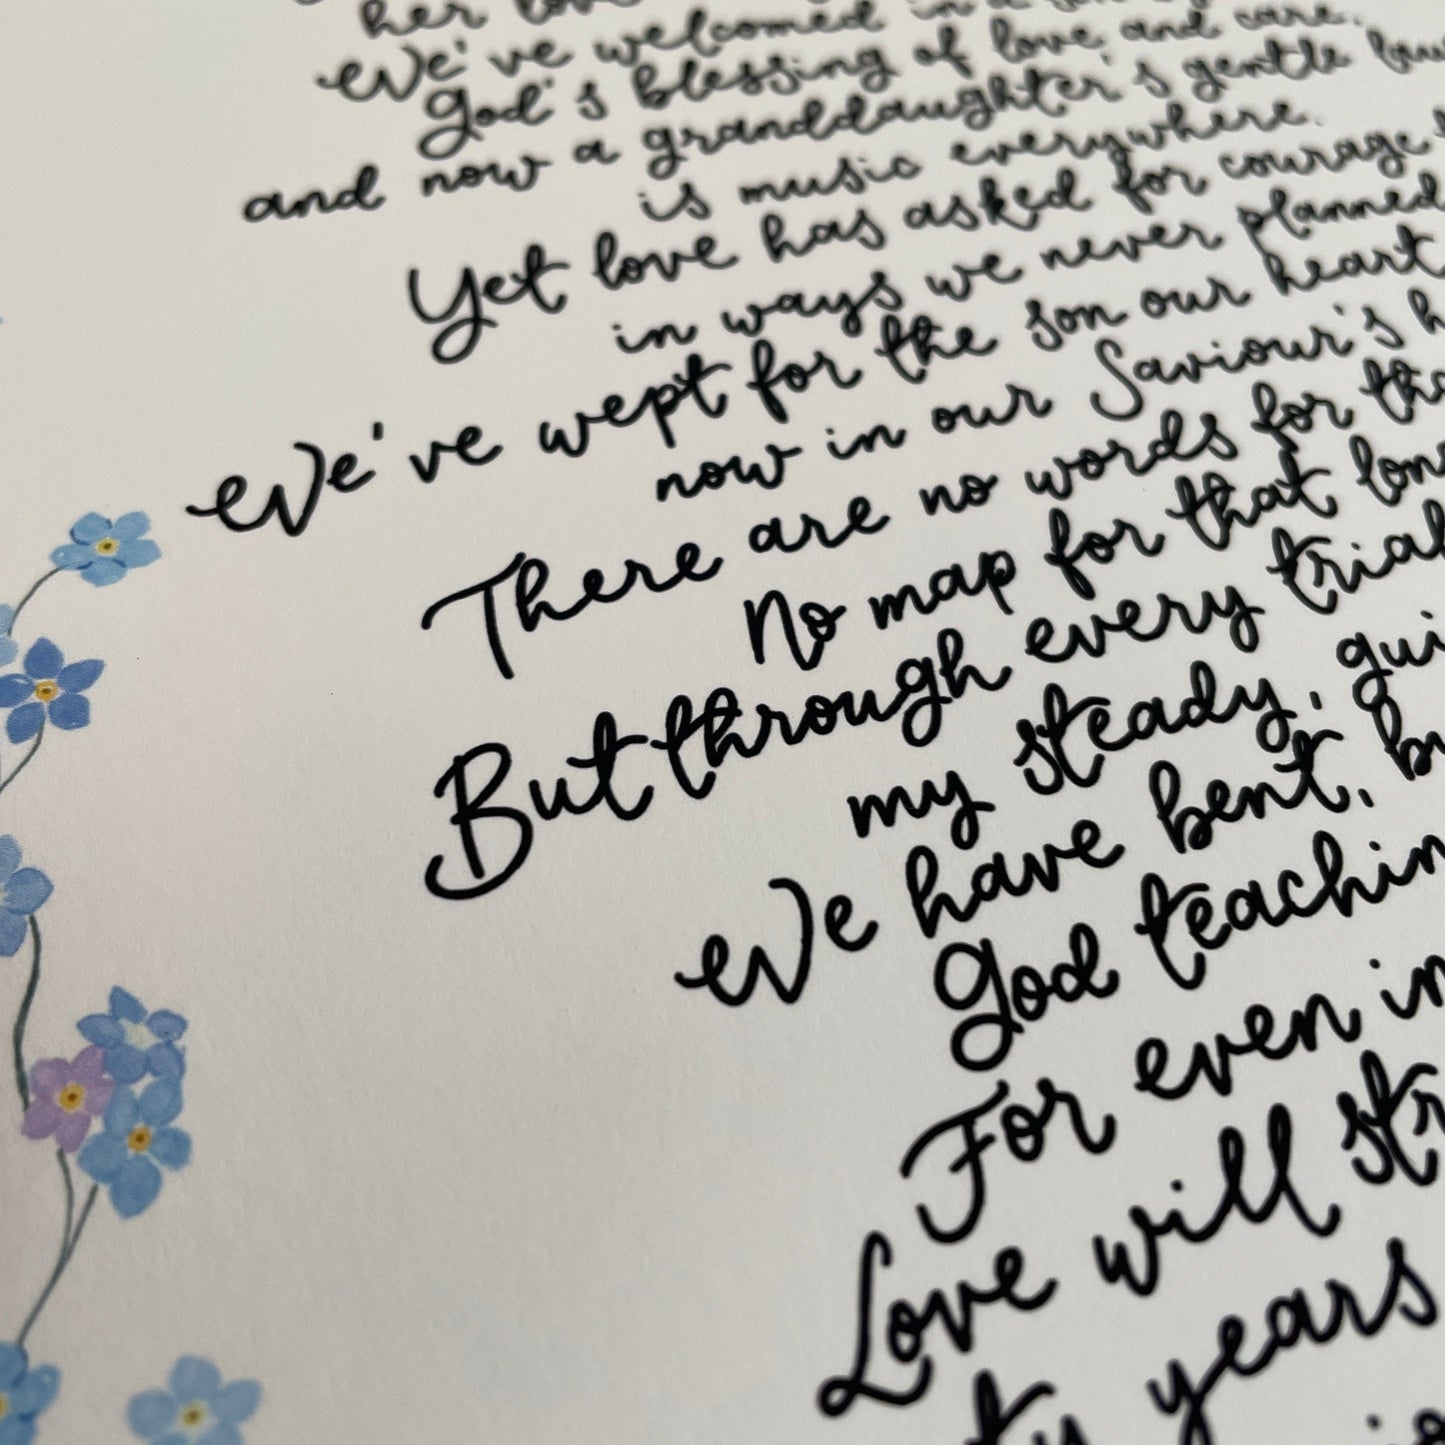 her love
We've welcomed in a
God's blessing of love and care.
and now a granddaughter's gentle
is music everywhere.
Yet love has asked for courage
in ways we never planned
We've wept for the son our heart
now in our Saviour's
There are no words for
No map for that
But through every trial
my steady,
We have bent,
God
For even
Love will
years